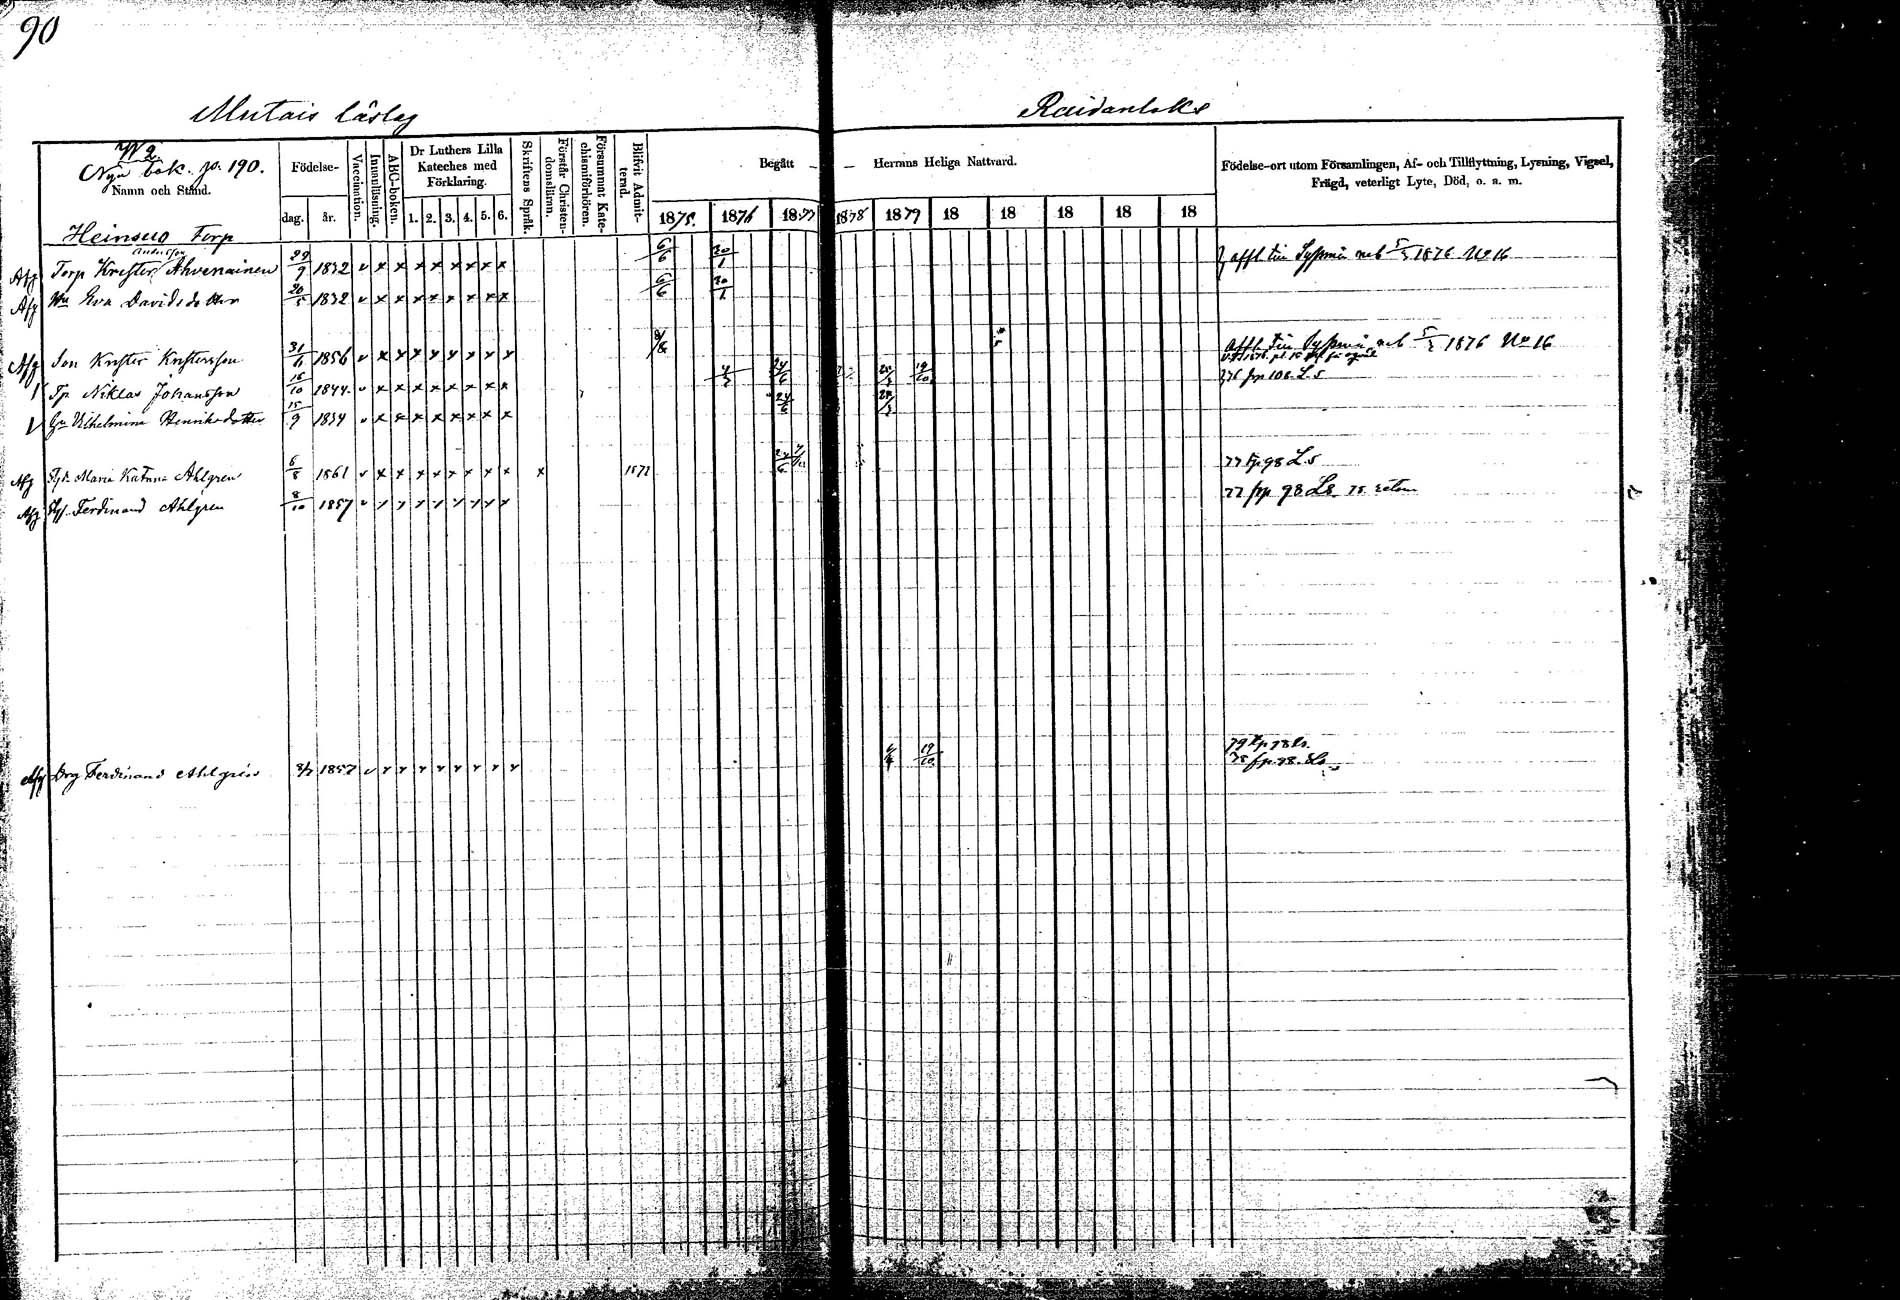 90
Mutais läslag
Raidanlaks
No 2
Nya bok. pa. 190.
Namn och Stånd.
Födelse-
dag.
år.
Vaccination.
Innanläsning.
ABC-boken.
Dr Luthers Lilla Kateches med Förklaring.
1. 2. 3. 4. 5. 6.
Skriftens Språk.
Förstår Christendomsläran.
Försummat Katechismiförhören.
Blifvit Admitterad.
Begått Herrans Heliga Nattvard.
1875. 1876 1877 1878 1879 18 18 18 18 18
Födelse-ort utom Församlingen, Af- och Tillflyttning, Lysning, Vigsel, Frägd, veterligt Lyte, Död, o. s. m.
Heinsuo Torp
Afg Torp Krister Andersson Ahvenainen 29/9 1832 v x x x x x x x x 6/6 30/1 affl till Sysmä 1876 No 16
Afg Hu Eva Davidsdotter 20/5 1832 v x x x x x x x x 6/6 30/1
Afg Son Krister Kristersson 31/6 1856 v x x x x x x x x Affl till Sysmä 1876 No 16
Tp Niklas Johansson 16/10 1844 v x x x x x x x x 24/6 19/10 76 frp 108. L 5
Hu Vilhelmina Henriksdotter 15/9 1834 v x x x x x x x x 24/6
Afg Maria Katrina Ahlgren 6/8 1861 v x x x x x x x x x 1877 77 tp 98 L 5
Afg Ferdinand Ahlgren 8/10 1857 v x x x x x x x x 77 frp 98 L8
Afg Drg Ferdinand Ahlgren 8/7 1857 v x x x x x x x x 19/10 79 tp 98 L.
78 frp. 98.